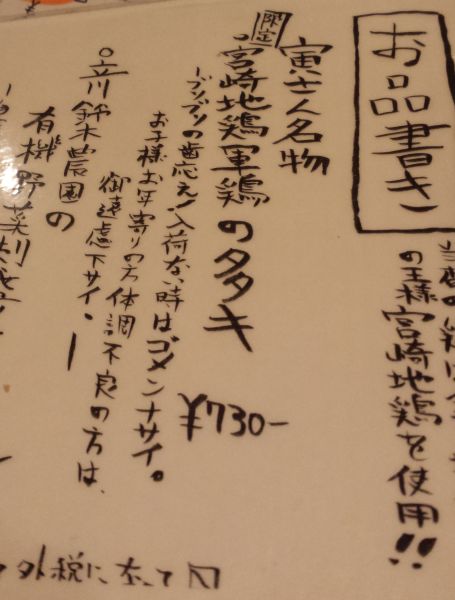 お品書き
の王様宮崎地鶏を使用!!
寅士人名物
限定
宮崎地鶏軍鶏のタタキ
ブリブリの歯応え!入荷ない時はゴメンナサイ。
¥730-
お子様お年寄りの方体調不良の方は、
御遠慮下サイ。
○立川鈴木農園の
有機野菜
外税に